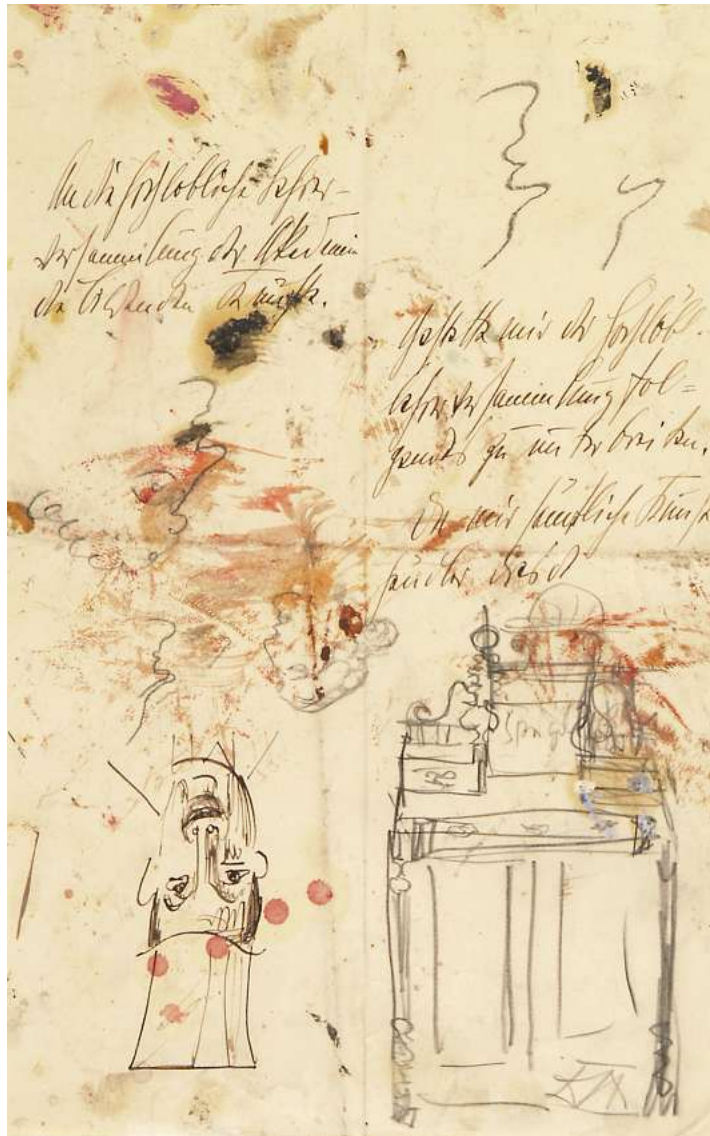 An die hochlöbliche Lehrer-
versammlung der Akademie
der bildenden Künste.
Gestatte mir der hochlöbl.
Lehrerversammlung fol=
gendes zu unterbreiten.
Da mir sämtliche Kunst